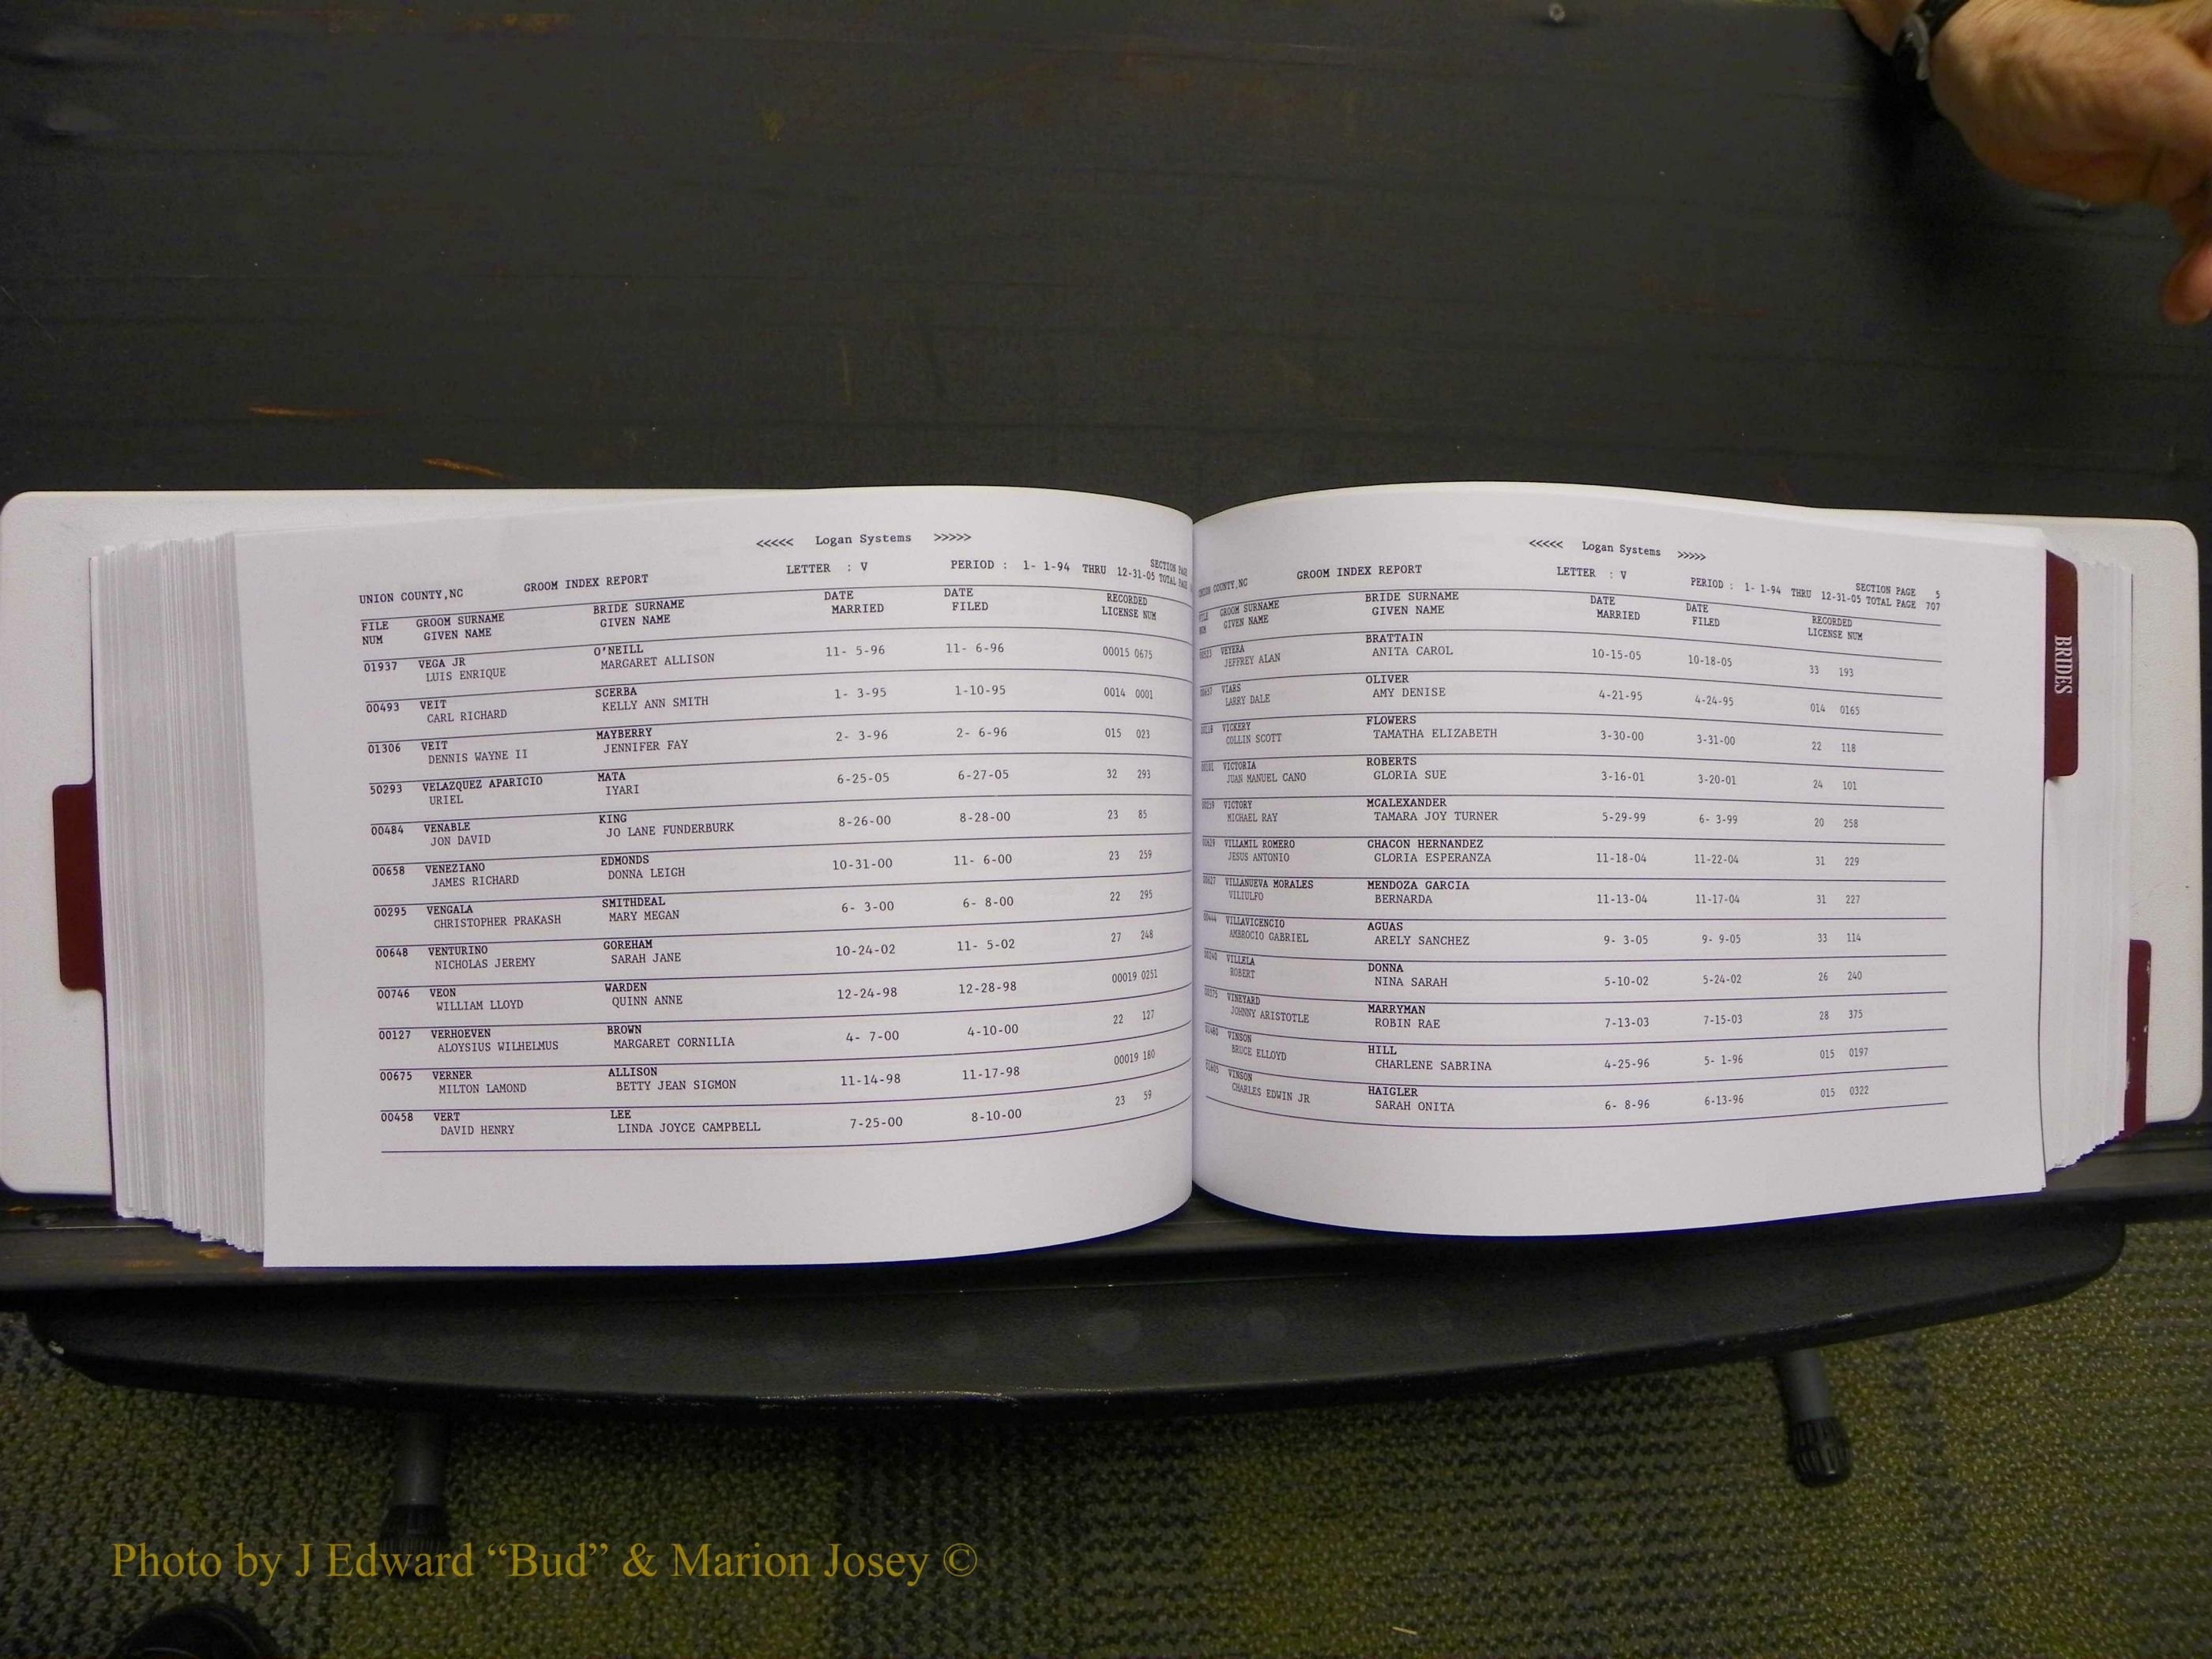 <<<<< Logan Systems >>>>>
UNION COUNTY,NC GROOM INDEX REPORT LETTER : V PERIOD : 1- 1-94 THRU 12-31-05 SECTION PAGE
TOTAL PAGE
FILE GROOM SURNAME BRIDE SURNAME DATE DATE RECORDED
NUM GIVEN NAME GIVEN NAME MARRIED FILED LICENSE NUM
01937 VEGA JR O'NEILL 11- 5-96 11- 6-96 00015 0675
LUIS ENRIQUE MARGARET ALLISON
00493 VEIT SCERBA 1- 3-95 1-10-95 0014 0001
CARL RICHARD KELLY ANN SMITH
01306 VEIT MAYBERRY 2- 3-96 2- 6-96 015 023
DENNIS WAYNE II JENNIFER FAY
50293 VELAZQUEZ APARICIO MATA 6-25-05 6-27-05 32 293
URIEL IYARI
00484 VENABLE KING 8-26-00 8-28-00 23 85
JON DAVID JO LANE FUNDERBURK
00658 VENEZIANO EDMONDS 10-31-00 11- 6-00 23 259
JAMES RICHARD DONNA LEIGH
00295 VENGALA SMITHDEAL 6- 3-00 6- 8-00 22 295
CHRISTOPHER PRAKASH MARY MEGAN
00648 VENTURINO GOREHAM 10-24-02 11- 5-02 27 248
NICHOLAS JEREMY SARAH JANE
00746 VEON WARDEN 12-24-98 12-28-98 00019 0251
WILLIAM LLOYD QUINN ANNE
00127 VERHOEVEN BROWN 4- 7-00 4-10-00 22 127
ALOYSIUS WILHELMUS MARGARET CORNILIA
00675 VERNER ALLISON 11-14-98 11-17-98 00019 180
MILTON LAMOND BETTY JEAN SIGMON
00458 VERT LEE 7-25-00 8-10-00 23 59
DAVID HENRY LINDA JOYCE CAMPBELL
<<<<< Logan Systems >>>>>
UNION COUNTY,NC GROOM INDEX REPORT LETTER : V PERIOD : 1- 1-94 THRU 12-31-05 SECTION PAGE 5
TOTAL PAGE 707
FILE GROOM SURNAME BRIDE SURNAME DATE DATE RECORDED
NUM GIVEN NAME GIVEN NAME MARRIED FILED LICENSE NUM
VEVERA BRATTAIN 10-15-05 10-18-05 33 193
JEFFREY ALAN ANITA CAROL
VIARS OLIVER 4-21-95 4-24-95 014 0165
LARRY DALE AMY DENISE
VICKERY FLOWERS 3-30-00 3-31-00 22 118
COLLIN SCOTT TAMATHA ELIZABETH
VICTORIA ROBERTS 3-16-01 3-20-01 24 101
JUAN MANUEL CANO GLORIA SUE
VICTORY MCALEXANDER 5-29-99 6- 3-99 20 258
MICHAEL RAY TAMARA JOY TURNER
VILLAMIL ROMERO CHACON HERNANDEZ 11-18-04 11-22-04 31 229
JESUS ANTONIO GLORIA ESPERANZA
VILLANUEVA MORALES MENDOZA GARCIA 11-13-04 11-17-04 31 227
VILIULFO BERNARDA
VILLAVICENCIO AGUAS 9- 3-05 9- 9-05 33 114
AMBROCIO GABRIEL ARELY SANCHEZ
VILLELA DONNA 5-10-02 5-24-02 26 240
ROBERT NINA SARAH
VINEYARD MARRYMAN 7-13-03 7-15-03 28 375
JOHNNY ARISTOTLE ROBIN RAE
VINSON HILL 4-25-96 5- 1-96 015 0197
BRUCE ELLOYD CHARLENE SABRINA
VINSON HAIGLER 6- 8-96 6-13-96 015 0322
CHARLES EDWIN JR SARAH ONITA
BRIDES
Photo by J Edward “Bud” & Marion Josey ©